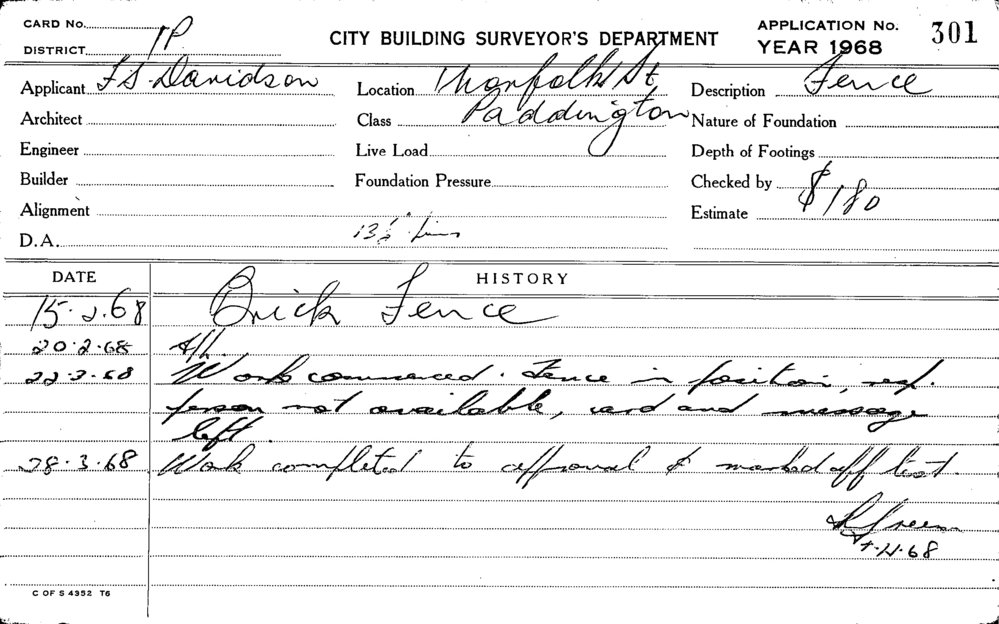 CARD No.
DISTRICT P
CITY BUILDING SURVEYOR'S DEPARTMENT
APPLICATION No. 301
YEAR 1968
Applicant F S. Davidson
Location Norfolk St
Description Fence
Architect
Class Paddington
Nature of Foundation
Engineer
Live Load
Depth of Footings
Builder
Foundation Pressure
Checked by
Alignment
Estimate $180
D.A.
DATE
HISTORY
15.2.68 Brick Fence
20.2.68
22.3.68 Work commenced. Fence in position, resp.
person not available, card and message
left.
28.3.68 Work completed to approval & marked off list.
4.68
C OF S 4352 T6